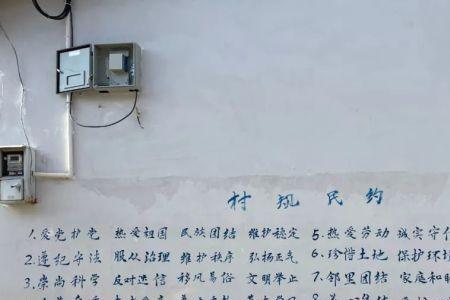 村规民约
1.爱党护党 热爱祖国 民族团结 维护稳定
2.遵纪守法 服从治理 维护秩序 弘扬正气
3.崇尚科学 反对迷信 移风易俗 文明举止
5.热爱劳动 诚实守信
6.珍惜土地 保护环境
7.邻里团结 家庭和睦